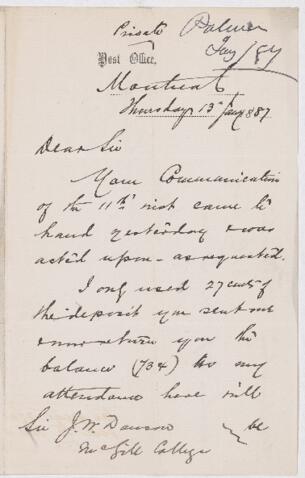 Private Palmer
Jany /87
Post Office,
Montreal
Thursday 13 Jany 1887
Dear Sir
Your Communication
of the 11th inst came to
hand yesterday & was
acted upon - as requested.
I only used 27 cents of
the deposit you sent me
& now return you the
balance (73¢)
attendance have will
be
Sir J. W. Dawson
McGill College